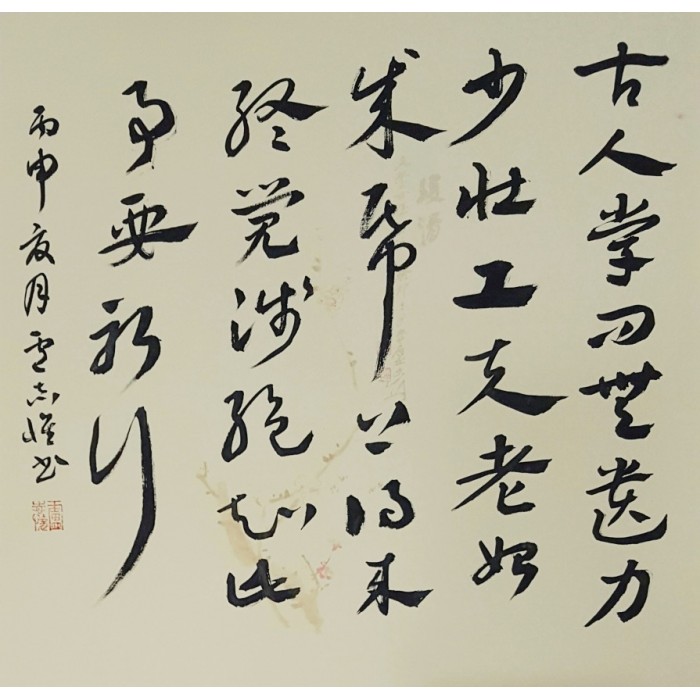 古人学问無遗力
少壮工夫老始
成帋上得来
终觉浅绝知此
事要躬行
丙申夏月志书